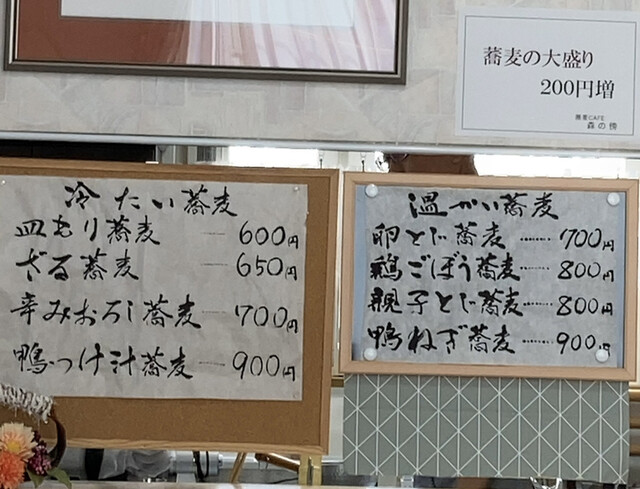 蕎麦の大盛り
200円増
蕎麦CAFE
森の榜
冷たい蕎麦
皿もり蕎麦 600円
ざる蕎麦 650円
辛みおろし蕎麦 700円
鴨つけ汁蕎麦 900円
温かい蕎麦
卵とじ蕎麦 700円
鶏ごぼう蕎麦 800円
親子とじ蕎麦 800円
鴨ねぎ蕎麦 900円